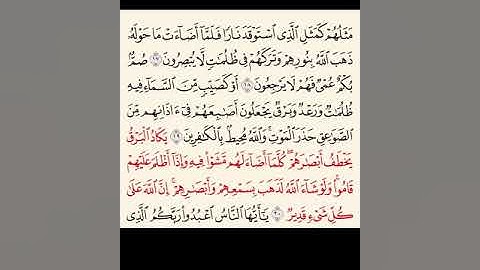 مَثَلُهُمْ كَمَثَلِ ٱلَّذِى ٱسْتَوْقَدَ نَارًا فَلَمَّآ أَضَآءَتْ مَا حَوْلَهُۥ
ذَهَبَ ٱللَّهُ بِنُورِهِمْ وَتَرَكَهُمْ فِى ظُلُمَٰتٍ لَّا يُبْصِرُونَ ١٧ صُمٌّۢ
بُكْمٌ عُمْىٌ فَهُمْ لَا يَرْجِعُونَ ١٨ أَوْ كَصَيِّبٍ مِّنَ ٱلسَّمَآءِ فِيهِ
ظُلُمَٰتٌ وَرَعْدٌ وَبَرْقٌ يَجْعَلُونَ أَصَٰبِعَهُمْ فِىٓ ءَاذَانِهِم مِّنَ
ٱلصَّوَٰعِقِ حَذَرَ ٱلْمَوْتِ وَٱللَّهُ مُحِيطٌۢ بِٱلْكَٰفِرِينَ ١٩ يَكَادُ ٱلْبَرْقُ
يَخْطَفُ أَبْصَٰرَهُمْ كُلَّمَآ أَضَآءَ لَهُم مَّشَوْا۟ فِيهِ وَإِذَآ أَظْلَمَ عَلَيْهِمْ
قَامُوا۟ وَلَوْ شَآءَ ٱللَّهُ لَذَهَبَ بِسَمْعِهِمْ وَأَبْصَٰرِهِمْ إِنَّ ٱللَّهَ عَلَىٰ
كُلِّ شَىْءٍ قَدِيرٌ ٢٠ يَٰٓأَيُّهَا ٱلنَّاسُ ٱعْبُدُوا۟ رَبَّكُمُ ٱلَّذِى